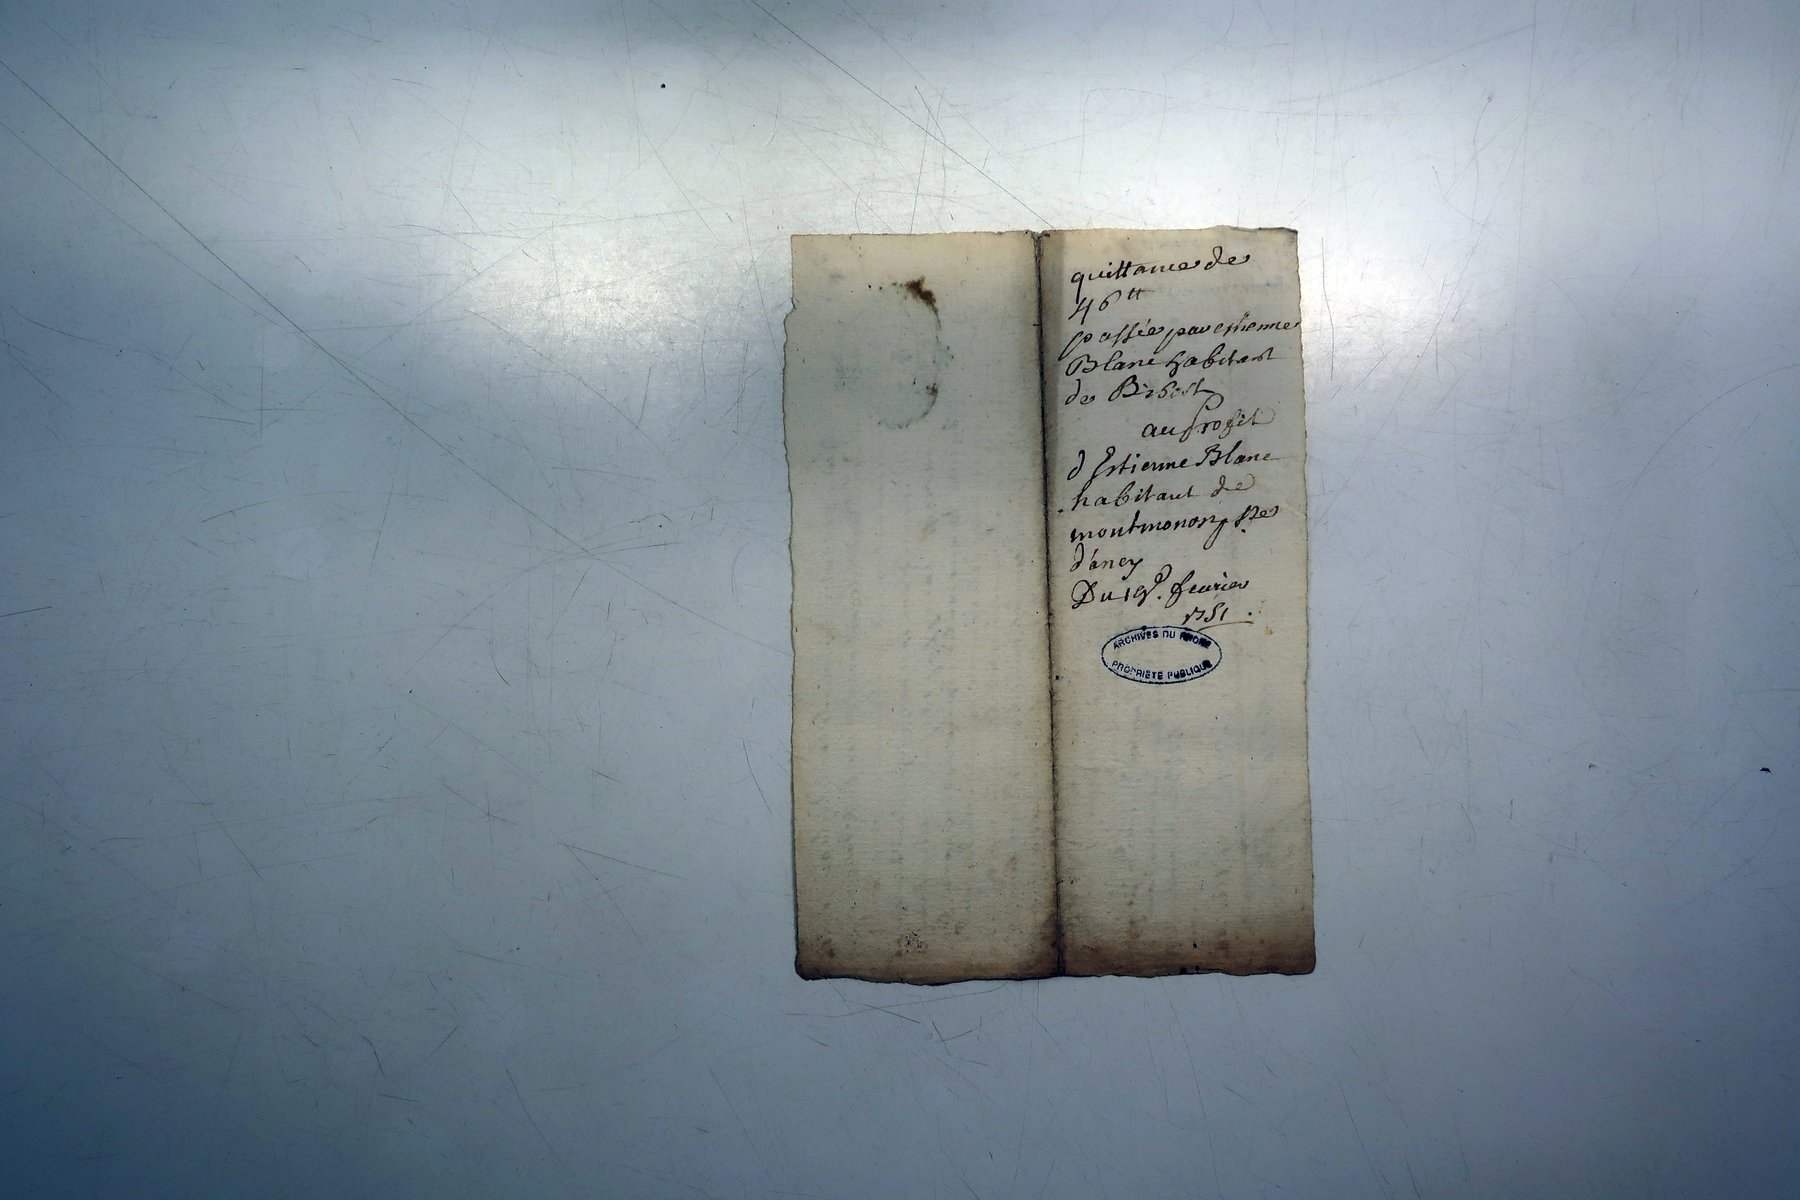 quittance de
46tt
passée par estienne
Blanc habitant
de Bibost
au profit
d'Estienne Blanc
habitant de
montmonon psse
d'ancy
Du 19e. feurier
1751.
ARCHIVES DU RHONE
PROPRIETE PUBLIQUE